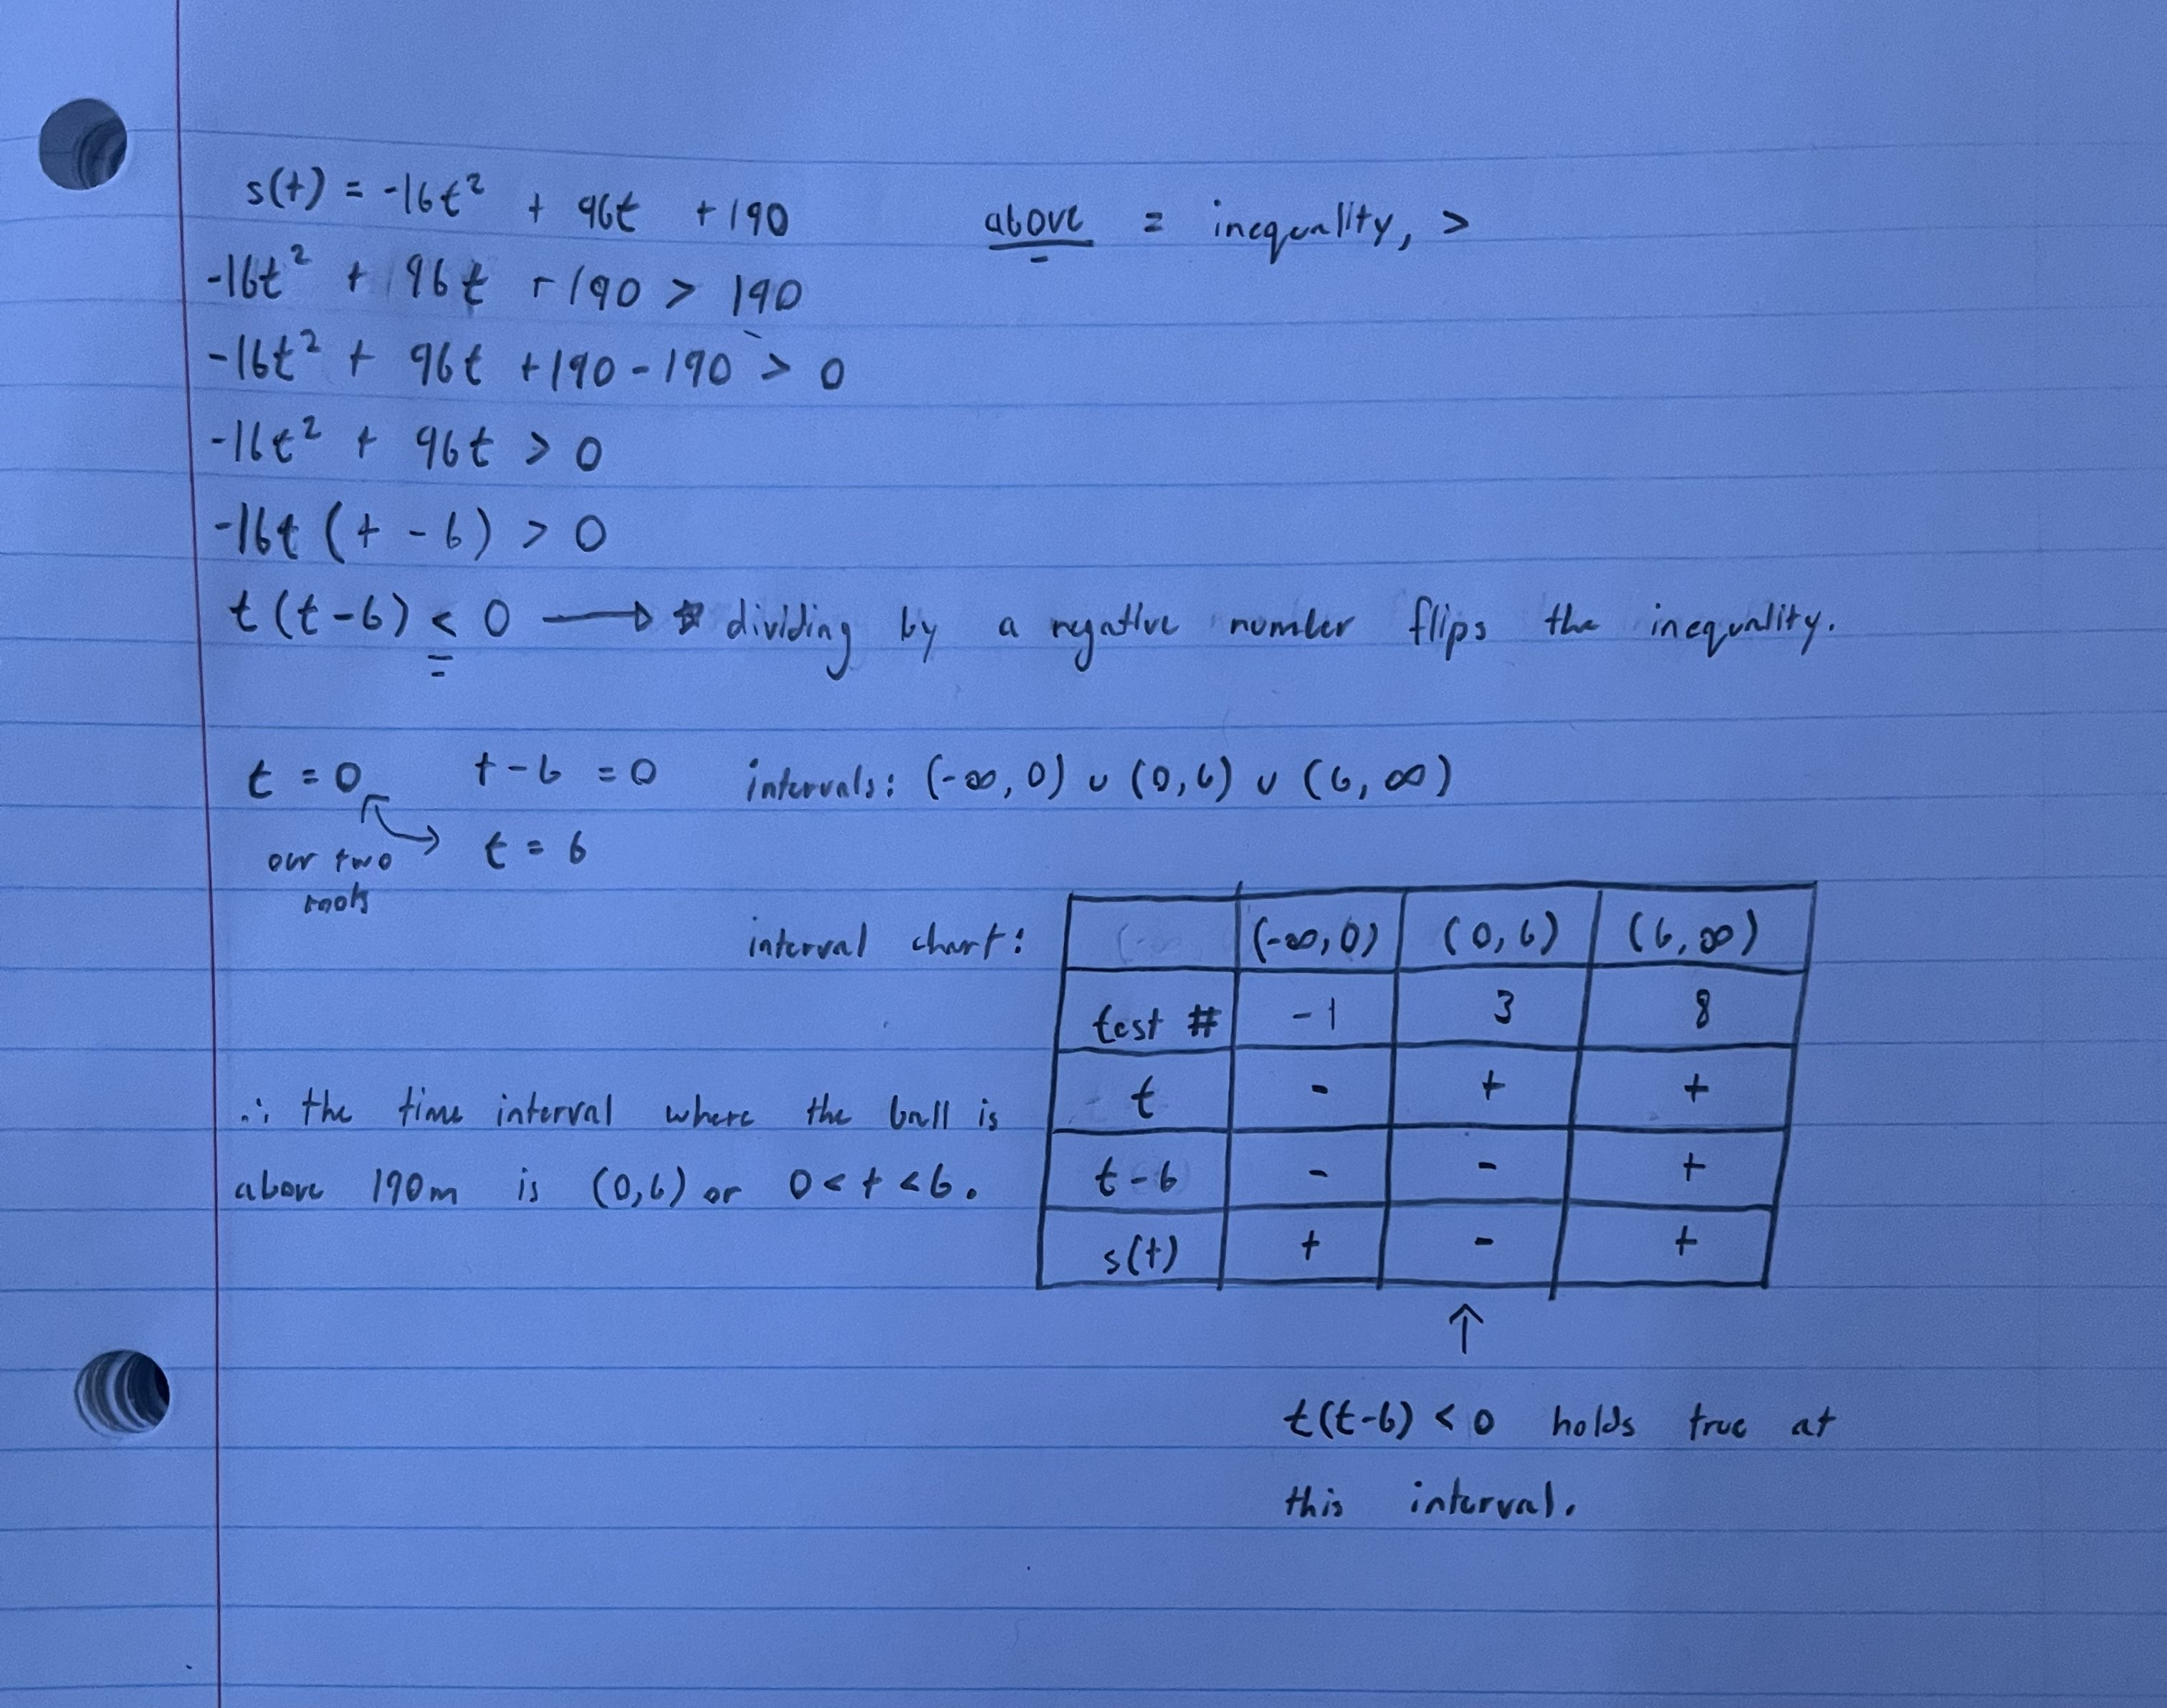 s(t) = -16t² + 96t + 190
above = inequality, >
-16t² + 96t + 190 > 190
-16t² + 96t + 190 - 190 > 0
-16t² + 96t > 0
-16t (t - 6) > 0
t (t - 6) < 0 → ☆ dividing by a negative number flips the inequality.
t = 0 t - 6 = 0 intervals: (-∞, 0) ∪ (0, 6) ∪ (6, ∞)
our two roots
t = 6
interval chart:
(-∞, 0) (0, 6) (6, ∞)
test # -1 3 8
t - + +
t - 6 - - +
s(t) + - +
∴ the time interval where the ball is
above 190m is (0, 6) or 0 < t < 6.
↑
t(t-6) < 0 holds true at
this interval.